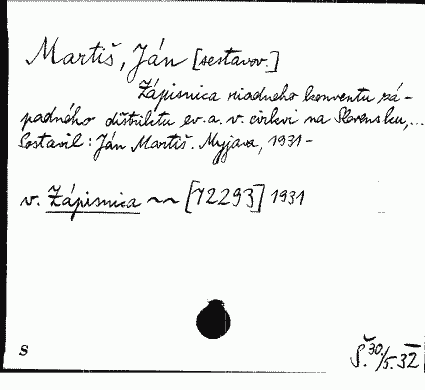 Martiš, Ján [sestavov.]
Zápisnica riadneho konventu zá-
padného dištriktu ev. a. v. cirkvi na Slovensku,...
Sostavil: Ján Martiš. Myjava, 1931-
v. Zápisnica ~~ [72293] 1931
s
Š. 30/5. 32